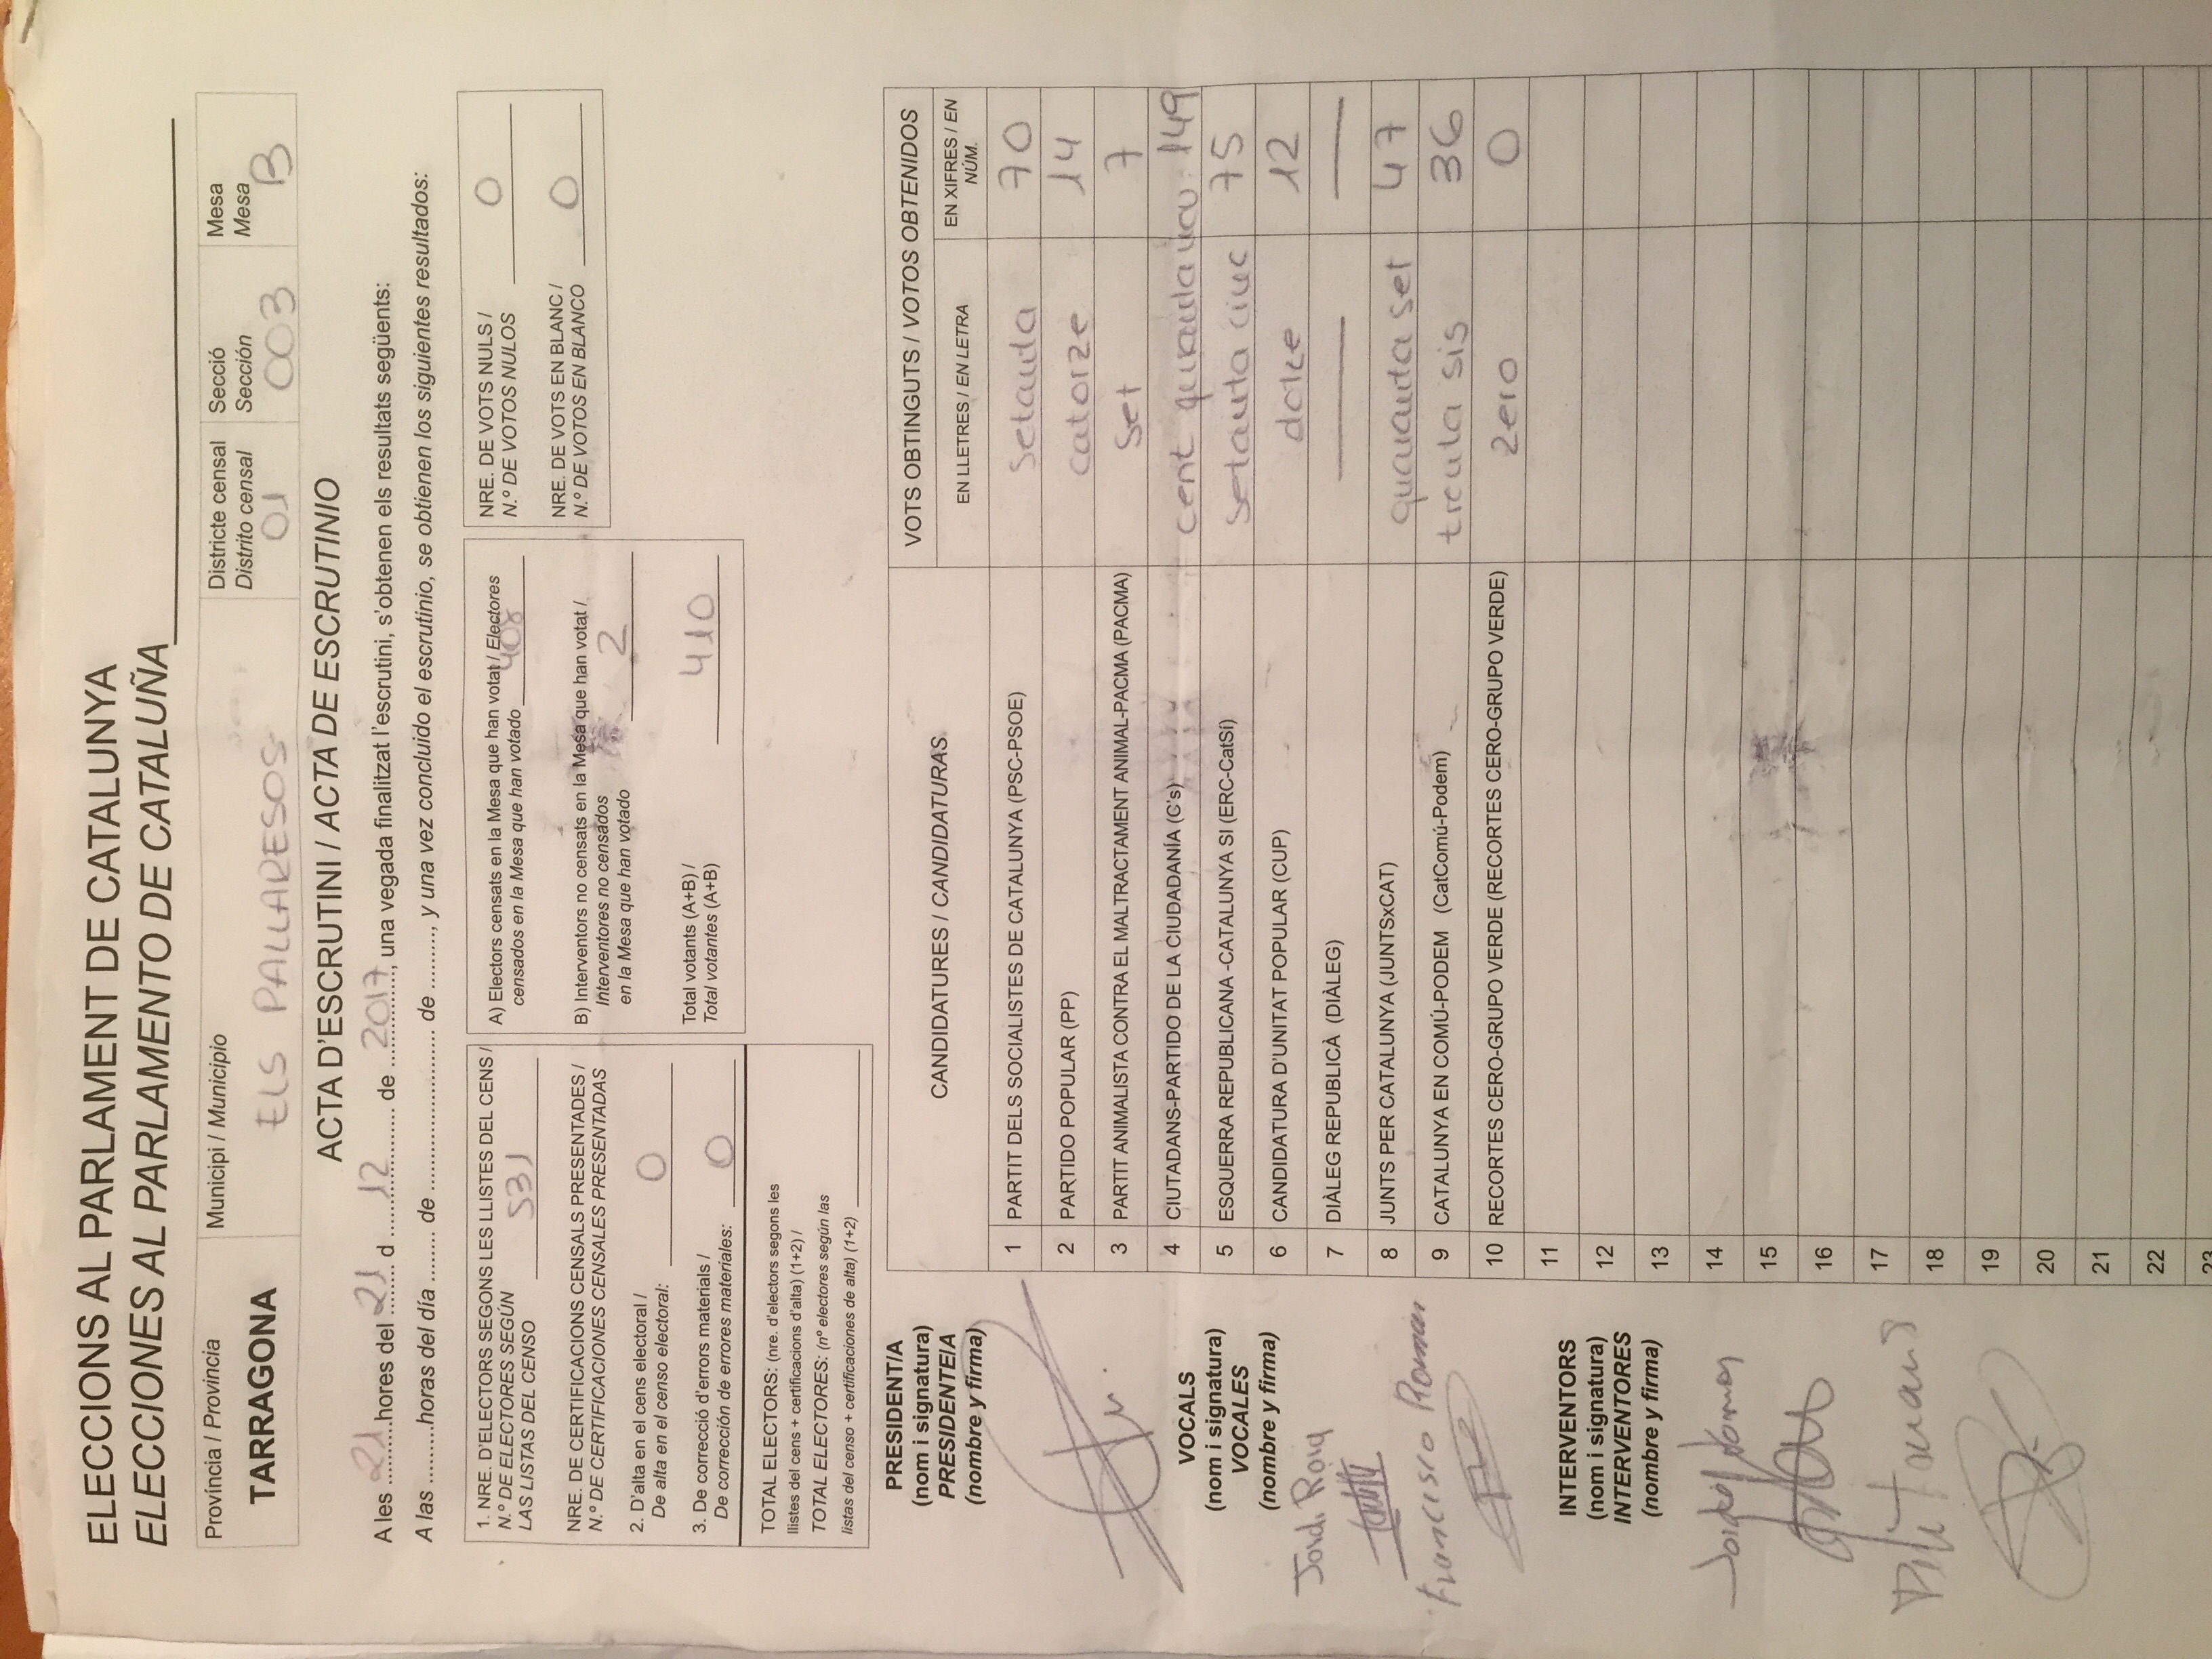 ELECCIONS AL PARLAMENT DE CATALUNYA
ELECCIONES AL PARLAMENTO DE CATALUÑA
Província / Provincia
TARRAGONA
Municipi / Municipio
ELS PALLARESOS
Districte censal
Distrito censal
01
Secció
Sección
003
Mesa
Mesa
B
ACTA D'ESCRUTINI / ACTA DE ESCRUTINIO
A les 21 hores del 21 d 12 de 2017, una vegada finalitzat l'escrutini, s'obtenen els resultats següents:
A las .........horas del día ........ de ......................... de ........., y una vez concluido el escrutinio, se obtienen los siguientes resultados:
1. NRE. D'ELECTORS SEGONS LES LLISTES DEL CENS /
N.º DE ELECTORES SEGÚN
LAS LISTAS DEL CENSO 531
NRE. DE CERTIFICACIONS CENSALS PRESENTADES /
N.º DE CERTIFICACIONES CENSALES PRESENTADAS
2. D'alta en el cens electoral /
De alta en el censo electoral: 0
3. De correcció d'errors materials /
De corrección de errores materiales: 0
TOTAL ELECTORS: (nre. d'electors segons les
llistes del cens + certificacions d'alta) (1+2) /
TOTAL ELECTORES: (nº electores según las
listas del censo + certificaciones de alta) (1+2)
A) Electors censats en la Mesa que han votat / Electores
censados en la Mesa que han votado 408
B) Interventors no censats en la Mesa que han votat /
Interventores no censados
en la Mesa que han votado 2
Total votants (A+B) /
Total votantes (A+B) 410
NRE. DE VOTS NULS /
N.º DE VOTOS NULOS 0
NRE. DE VOTS EN BLANC /
N.º DE VOTOS EN BLANCO 0
PRESIDENT/A
(nom i signatura)
PRESIDENTE/A
(nombre y firma)
VOCALS
(nom i signatura)
VOCALES
(nombre y firma)
Jordi Roig
Francisco Roman
INTERVENTORS
(nom i signatura)
INTERVENTORES
(nombre y firma)
CANDIDATURES / CANDIDATURAS
VOTS OBTINGUTS / VOTOS OBTENIDOS
EN LLETRES / EN LETRA
EN XIFRES / EN
NÚM.
1 PARTIT DELS SOCIALISTES DE CATALUNYA (PSC-PSOE) setanta 70
2 PARTIDO POPULAR (PP) catorze 14
3 PARTIT ANIMALISTA CONTRA EL MALTRACTAMENT ANIMAL-PACMA (PACMA) set 7
4 CIUTADANS-PARTIDO DE LA CIUDADANÍA (C's) cent quranta nou 149
5 ESQUERRA REPUBLICANA -CATALUNYA SI (ERC-CatSí) setanta cinc 75
6 CANDIDATURA D'UNITAT POPULAR (CUP) dotze 12
7 DIÀLEG REPUBLICÀ (DIÀLEG)
8 JUNTS PER CATALUNYA (JUNTSxCAT) quaranta set 47
9 CATALUNYA EN COMÚ-PODEM (CatComú-Podem) trenta sis 36
10 RECORTES CERO-GRUPO VERDE (RECORTES CERO-GRUPO VERDE) zero 0
11
12
13
14
15
16
17
18
19
20
21
22
23